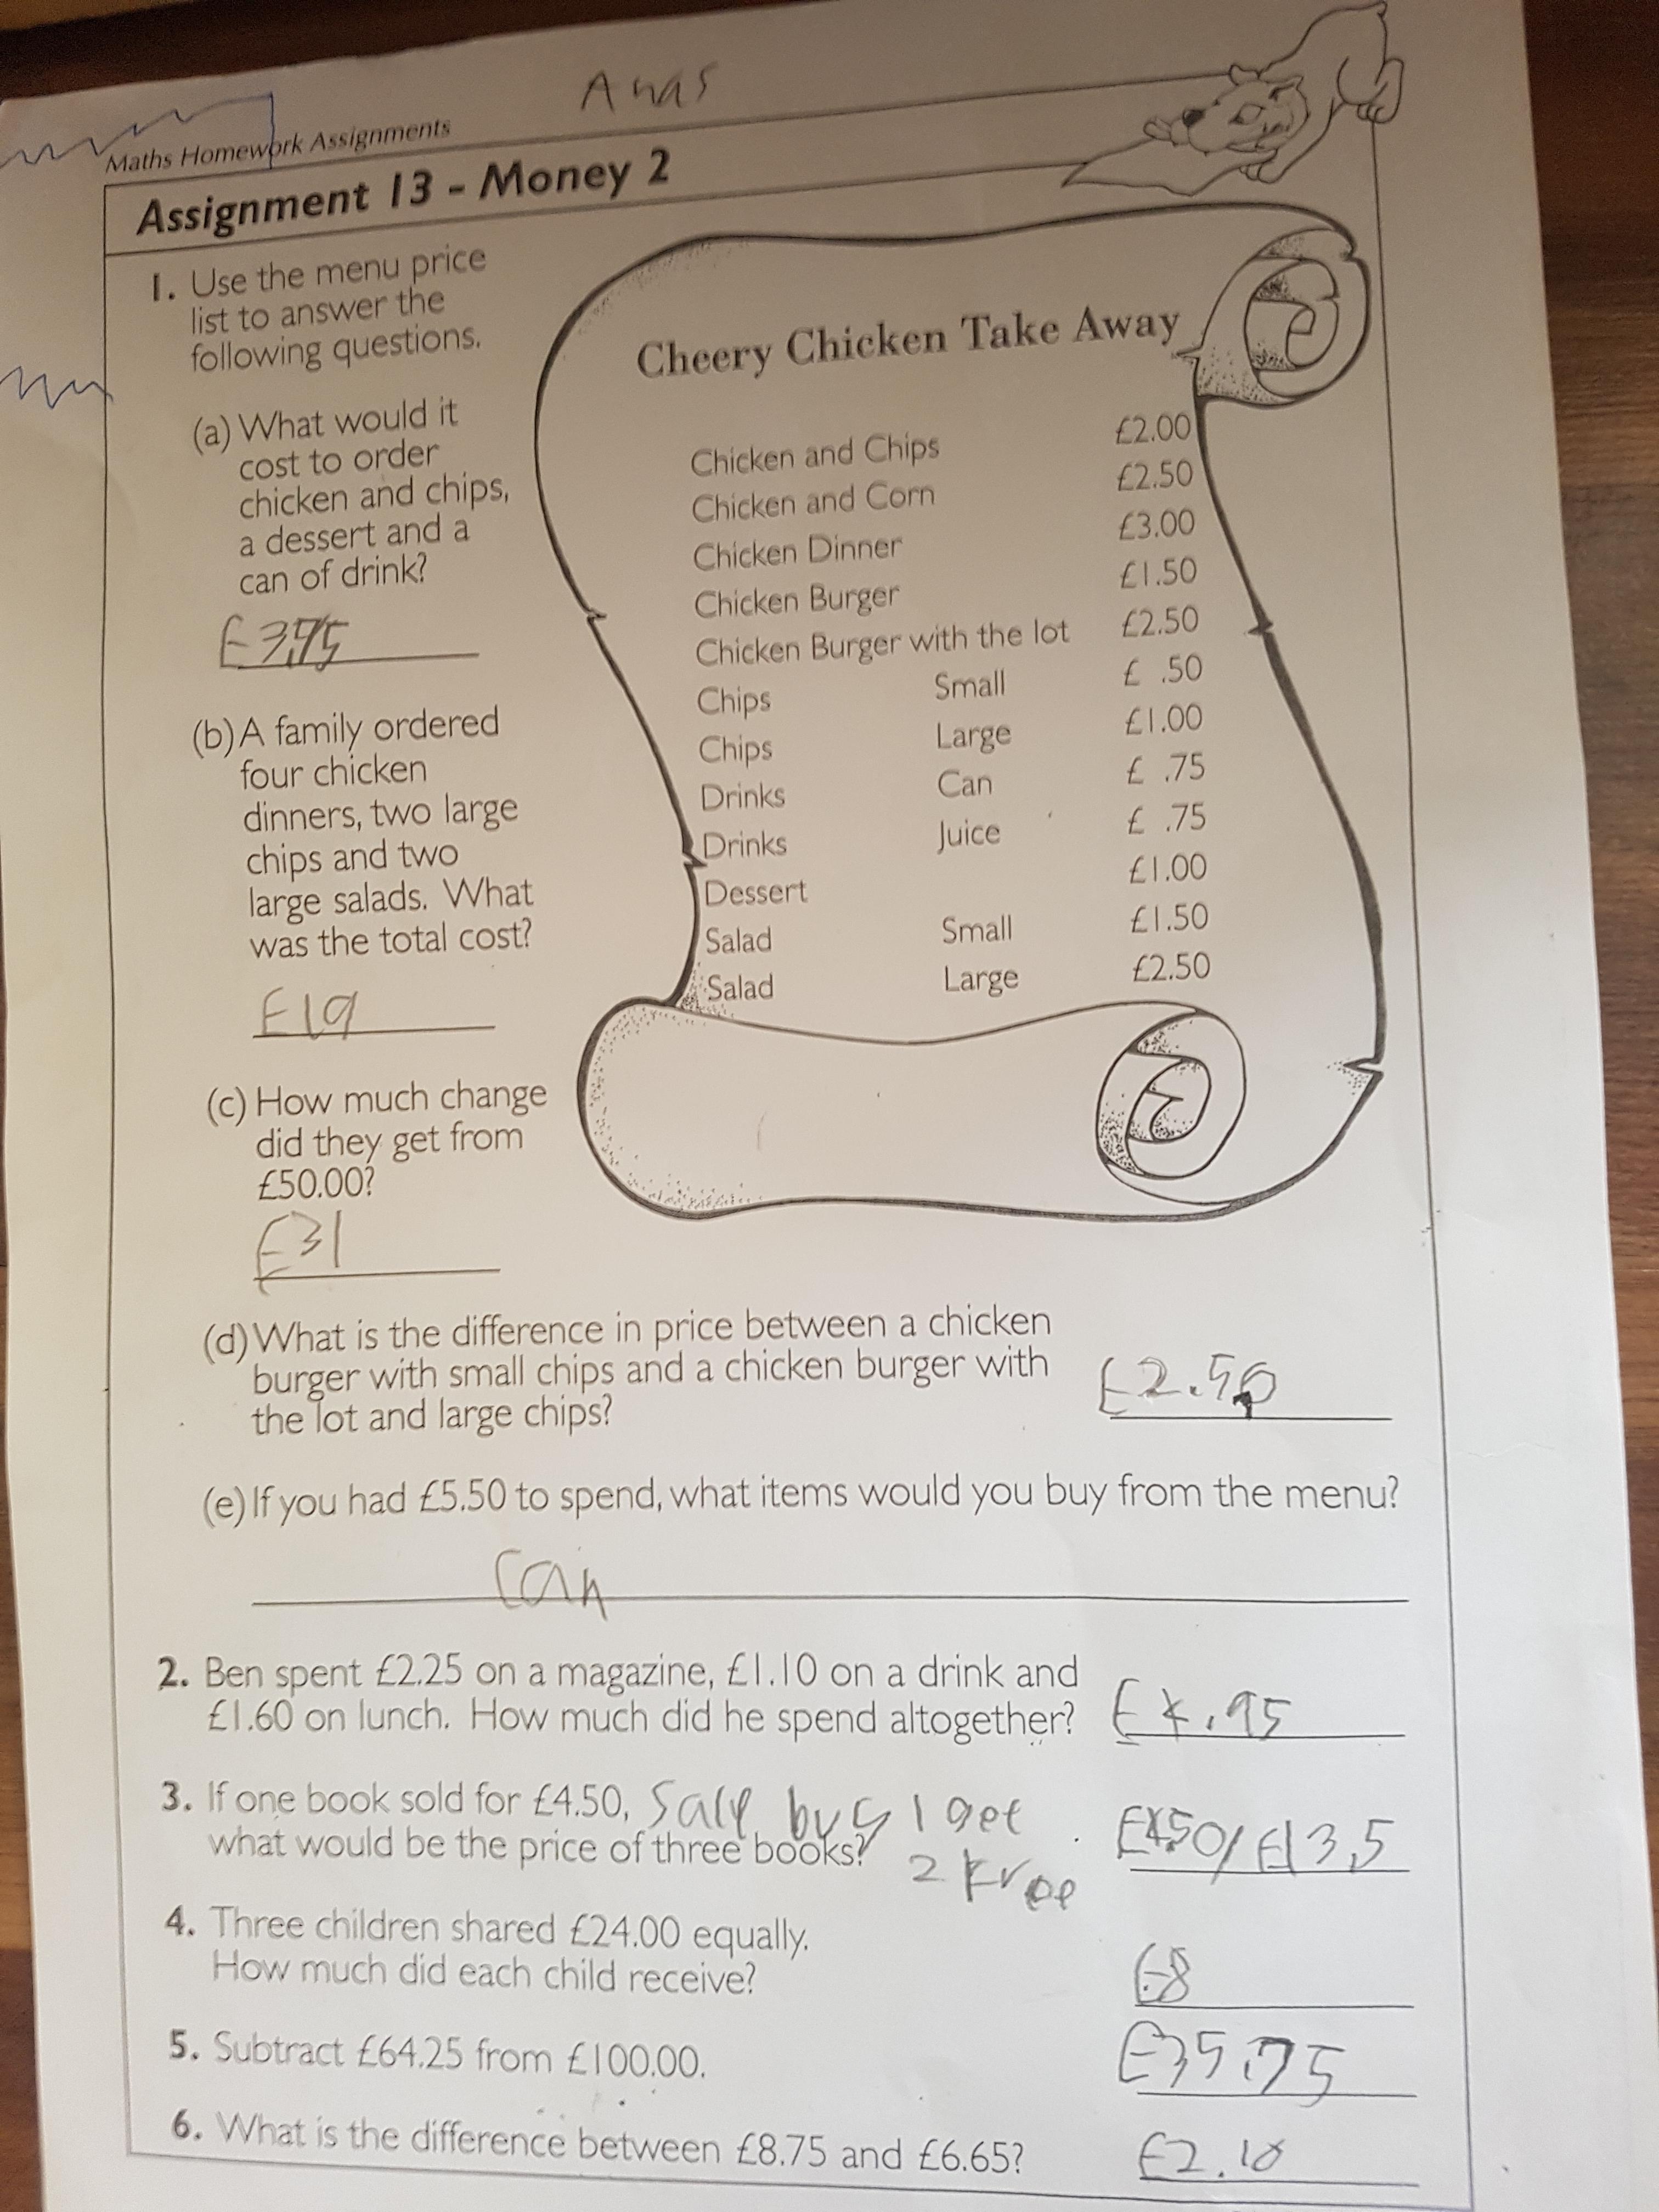 Anas
Maths Homework Assignments
Assignment 13 - Money 2
1. Use the menu price
list to answer the
following questions.
(a) What would it
cost to order
chicken and chips,
a dessert and a
can of drink?
£3.75
(b) A family ordered
four chicken
dinners, two large
chips and two
large salads. What
was the total cost?
£19
(c) How much change
did they get from
£50.00?
£31
Cheery Chicken Take Away
Chicken and Chips £2.00
Chicken and Corn £2.50
Chicken Dinner £3.00
Chicken Burger £1.50
Chicken Burger with the lot £2.50
Chips Small £ .50
Chips Large £1.00
Drinks Can £ .75
Drinks Juice £ .75
Dessert £1.00
Salad Small £1.50
Salad Large £2.50
(d) What is the difference in price between a chicken
burger with small chips and a chicken burger with
the lot and large chips?
£2.50
(e) If you had £5.50 to spend, what items would you buy from the menu?
Can
2. Ben spent £2.25 on a magazine, £1.10 on a drink and
£1.60 on lunch. How much did he spend altogether?
£4.95
3. If one book sold for £4.50, Sale buy 1 get
what would be the price of three books? 2 Free
£4.50/£13.5
4. Three children shared £24.00 equally.
How much did each child receive?
£8
5. Subtract £64.25 from £100.00.
£35.75
6. What is the difference between £8.75 and £6.65?
£2.10